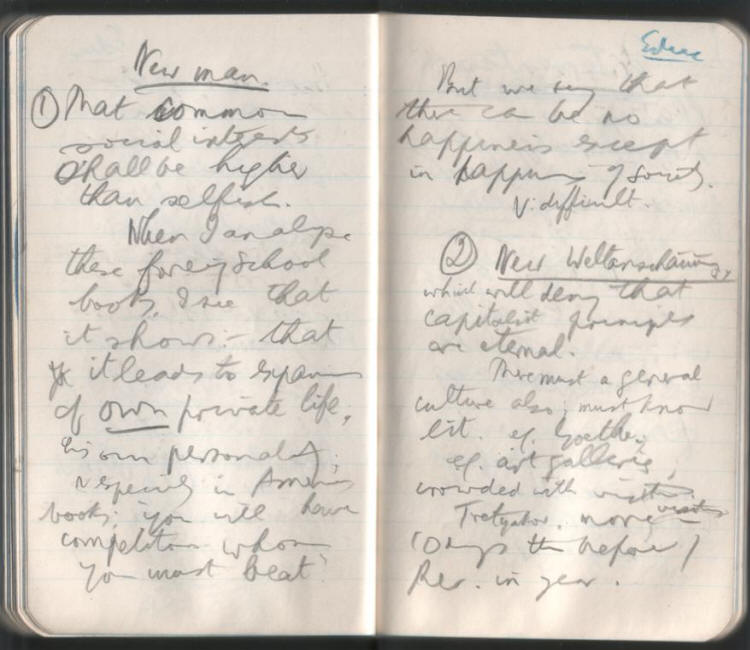 New man.
① That common
social interests
shall be higher
than selfish.
When I analyse
these foreign School
books, I see that
it shows :- that
it leads to
of own private life,
his own personality;
especially in American
books; you will have
competitors whom
you must beat
Educ
But we say that
there can be no
happiness except
in happiness of Society.
V. difficult.
② New Weltanschauung,
which will deny that
capitalist principles
are eternal.
There must a general
culture also; must know
lit. eg. Goethe;
eg. art galleries,
crowded with
Tretyakov. more visitors
before
Rev. in year.